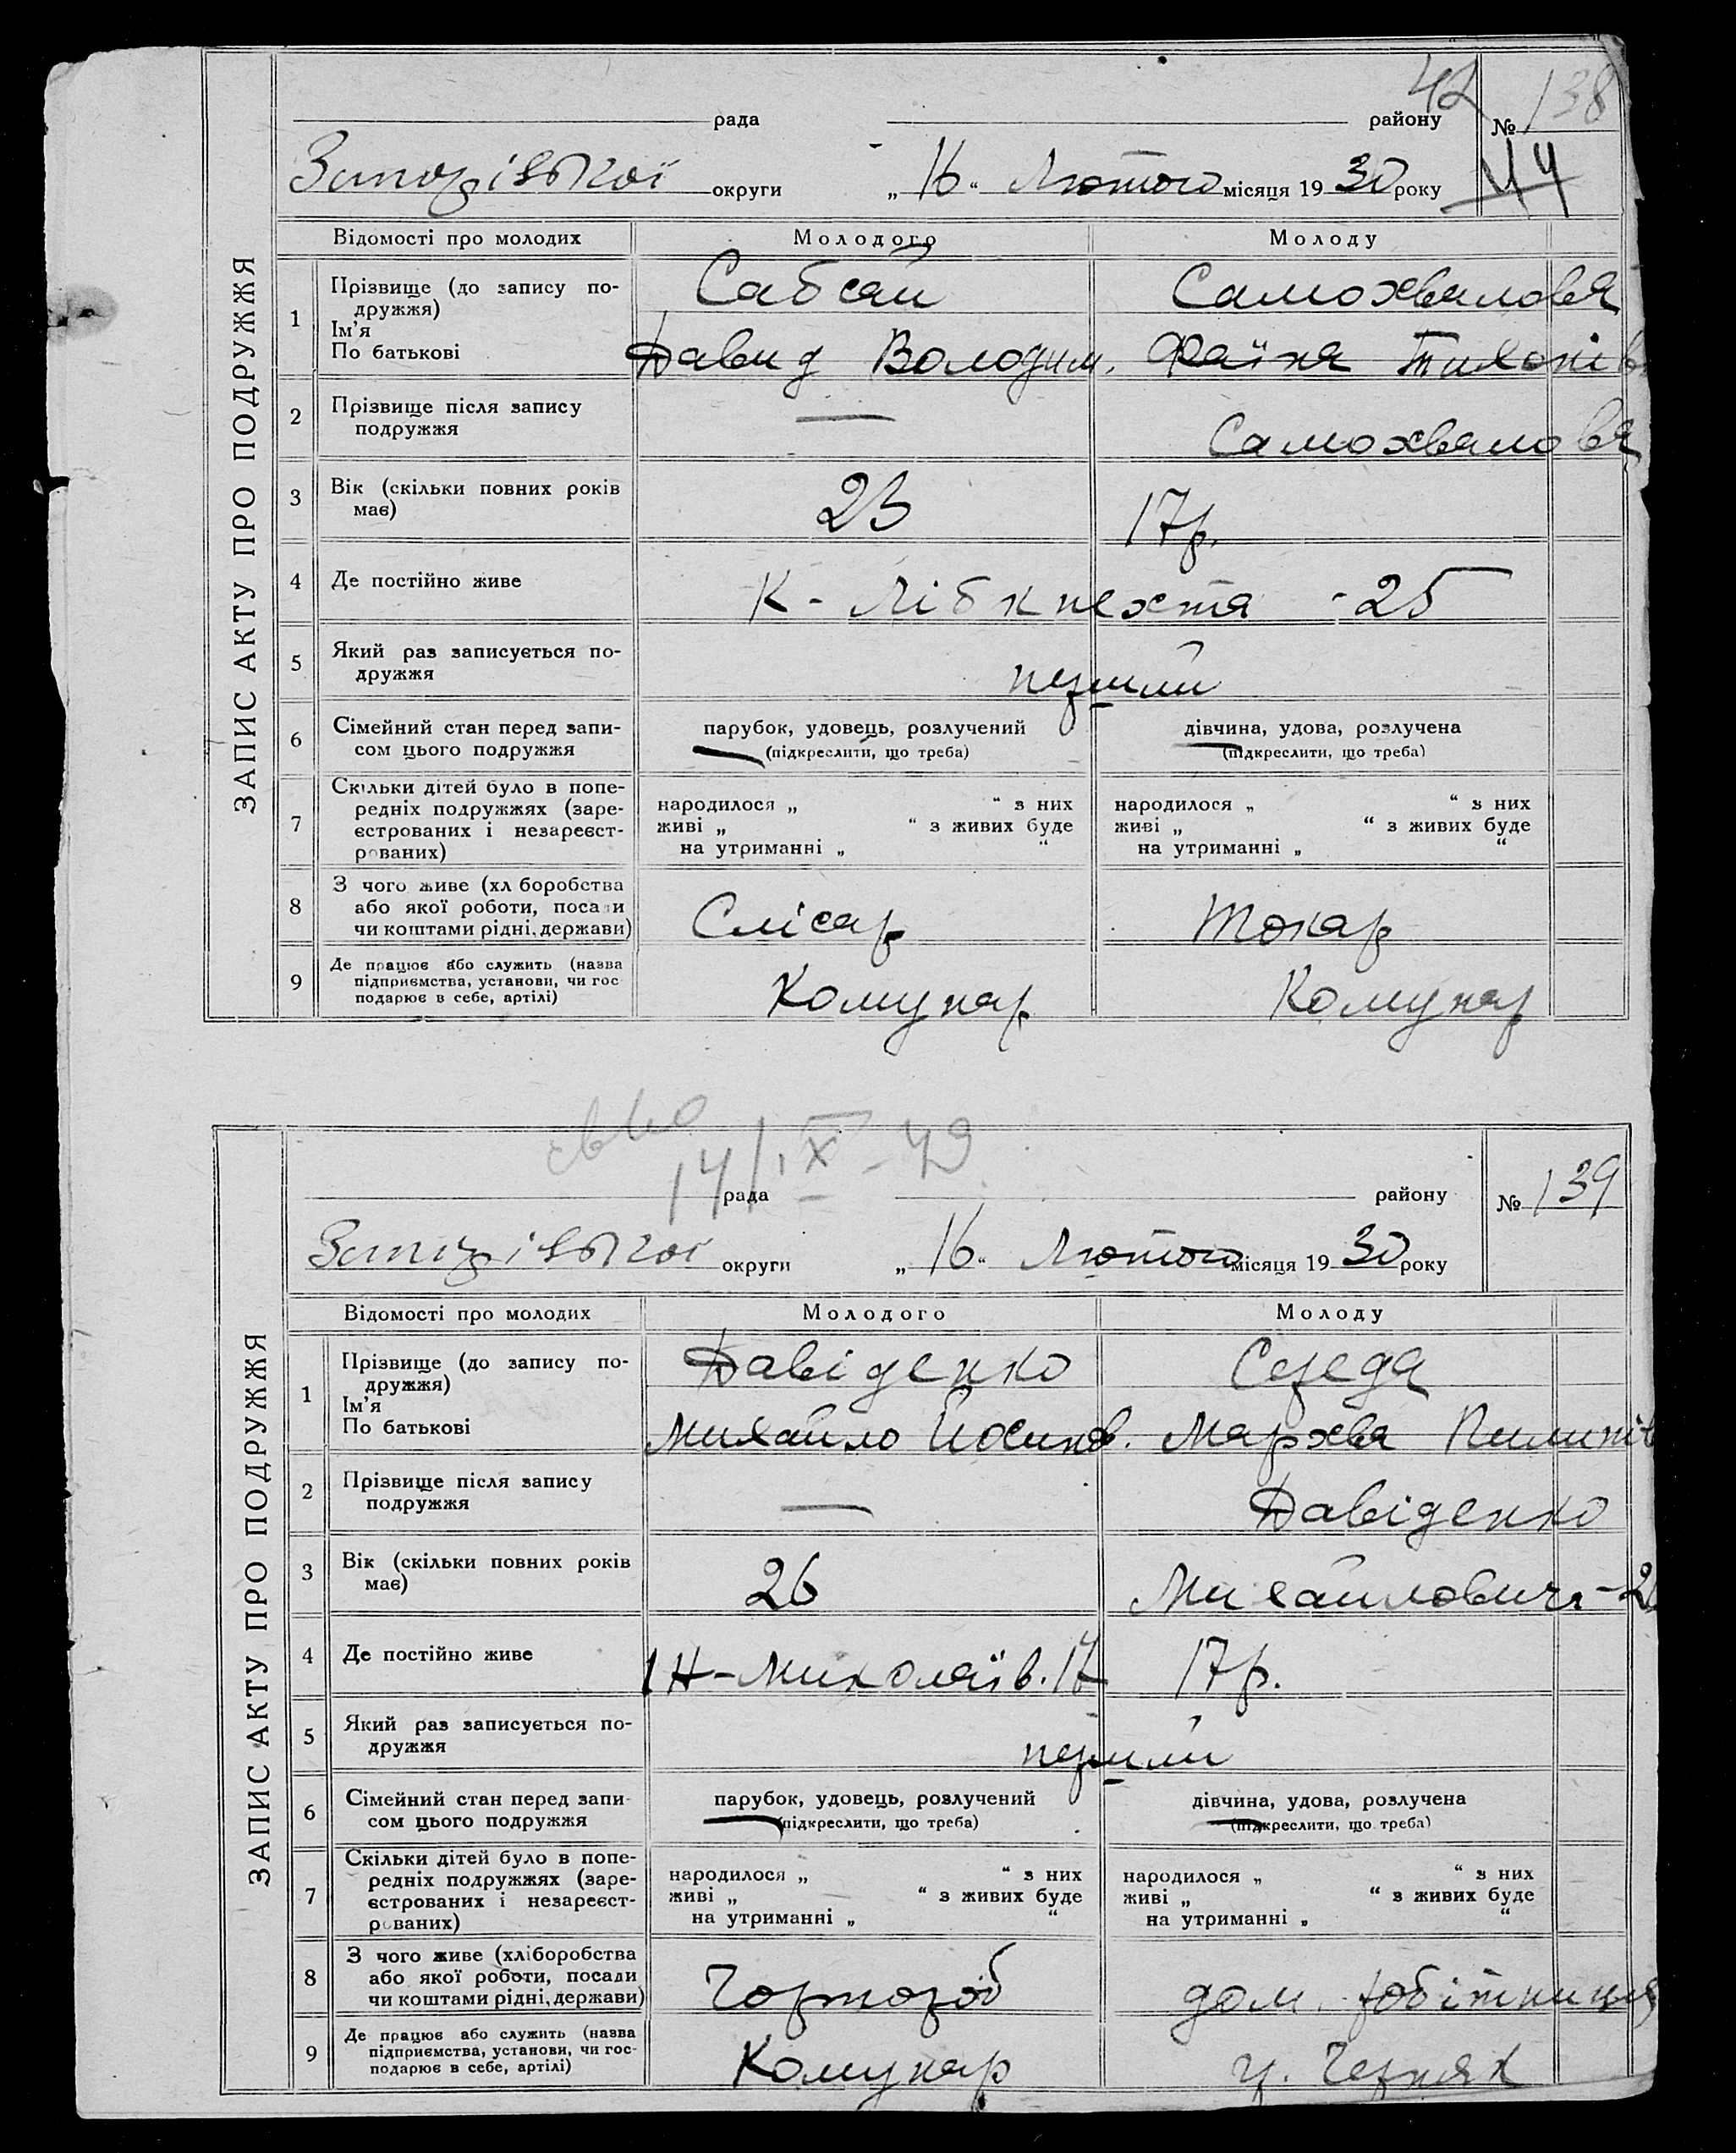 42
рада району № 138
Запорізької округи „16“ Лютого місяця 1930 року 44
ЗАПИС АКТУ ПРО ПОДРУЖЖЯ
Відомості про молодих Молодого Молоду
1 Прізвище (до запису по- Сабсай Самохвалова
дружжя)
Ім'я
По батькові Давид Володим. Фаїна Тихонів
2 Прізвище після запису — Самохвалова
подружжя
3 Вік (скільки повних років 23 17р.
має)
4 Де постійно живе К-Лібкнехта -25
5 Який раз записується по- перший
дружжя
6 Сімейний стан перед запи- парубок, удовець, розлучений дівчина, удова, розлучена
сом цього подружжя (підкреслити, що треба) (підкреслити, що треба)
7 Скільки дітей було в попе-
редніх подружжях (заре- народилося „ “ з них народилося „ “ з них
єстрованих і незареєст- живі „ “ з живих буде живі „ “ з живих буде
рованих) на утриманні „ “ на утриманні „ “
8 З чого живе (хліборобства
або якої роботи, посади Слісар Токар
чи коштами рідні, держави)
9 Де працює або служить (назва
підприємства, установи, чи гос- Комунар Комунар
подарює в себе, артілі)
14/IX-49
рада району № 139
Запорізької округи „16“ Лютого місяця 1930 року
ЗАПИС АКТУ ПРО ПОДРУЖЖЯ
Відомості про молодих Молодого Молоду
1 Прізвище (до запису по- Давіденко Середа
дружжя)
Ім'я
По батькові Михайло Йосипов. Мархва Пилипів
2 Прізвище після запису — Давіденко
подружжя
3 Вік (скільки повних років 26 Михайловича
має)
4 Де постійно живе 1 Н-Миколаїв. 17 17р.
5 Який раз записується по- перший
дружжя
6 Сімейний стан перед запи- парубок, удовець, розлучений дівчина, удова, розлучена
сом цього подружжя (підкреслити, що треба) (підкреслити, що треба)
7 Скільки дітей було в попе-
редніх подружжях (заре- народилося „ “ з них народилося „ “ з них
єстрованих і незареєст- живі „ “ з живих буде живі „ “ з живих буде
рованих) на утриманні „ “ на утриманні „ “
8 З чого живе (хліборобства
або якої роботи, посади Чорнороб дом. робітниця
чи коштами рідні, держави)
9 Де працює або служить (назва
підприємства, установи, чи гос- Комунар гр. Черняк
подарює в себе, артілі)